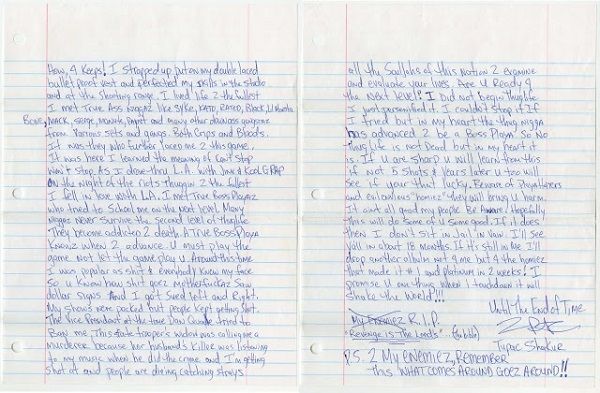 How, 4 Keeps! I strapped up put on my double laced
bullet proof vest and perfected my skills in the studio
and at the shooting range. I lived life 2 the fullest
I met True Ass Niggaz like Syke, Kato, Rated, Black, Lil Monsta
Bone, Mack, Serge, Monsta, and many other down ass gangstaz
from various sets and gangs. Both Crips and Bloods.
It was they who further laced me 2 this game.
It was here I learned the meaning of Can't Stop
Won't Stop. As I drove thru L.A. with and Kool G Rap
on the night of the riots Thuggin 2 the fullest
I fell in love with L.A. I met True Boss Playaz
who tried to School me on the next level. Many
niggaz never survive the second level of thuglife
They become addicted 2 death. A True Boss Playa
Knowz when 2 advance. U must play the
game not let the game play U. Around this time
I was popular as shit & everybody knew my face
So u know how shit goez motherfuckaz saw
dollar signs And I got sued left and Right.
My shows were packed but people kept getting shot.
The Vice President at the time Dan Quayle tried to
Ban me. This state trooper's widow was calling me a
murderer because her husband's killer was listening
to my music when he did the crime and I'm getting
shot at and people are diving catching strays
all the Souljahs of this Nation 2 examine
and evaluate your lives. Are U Ready 4
the Next level? I Did not begin Thuglife
I just personified it. I couldn't stop it If
I tried but in my heart the thug nigga
has advanced 2 be a Boss Playa So No
Thug life is not Dead but in my heart it
is. If U are sharp u will learn from this
if not 5 shots & years later u too will
see if your that lucky. Beware of Playa Haters
and envious "homiez" they will bring u harm.
It aint all good my people Be Aware! Hopefully
this will do some of u some good. If it does
then I don't sit in Jail in Vain. I'll see
yall in about 18 months. If it's still on Me I'll
drop another album not 4 me but 4 the homiez
that made it #1 and platinum in 2 weeks! I
promise U one thing when I touchdown it will
shake the World!!!
Until The End of Time
My Enemiez R.I.P.
"Revenge is The Lords" (bible)
Tupac Shakur
P.S. 2 My ENEMIEZ, Remember
this WHAT COMES AROUND GOEZ AROUND!!